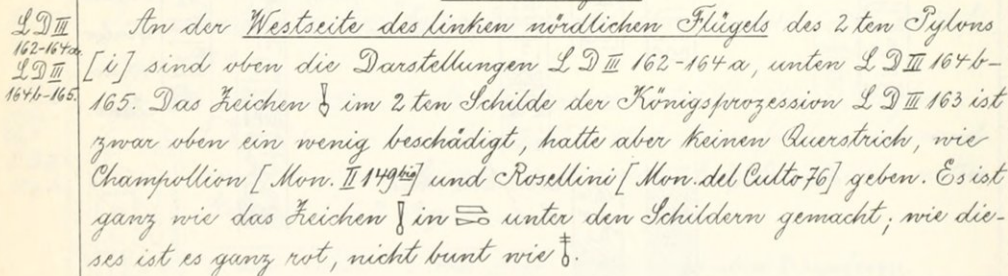 L D III
162-164a.
L D III
164b-165.
An der Westseite des linken nördlichen Flügels des 2ten Pylons
[i] sind oben die Darstellungen L D III 162-164a, unten L D III 164b-
165. Das Zeichen im 2ten Schilde der Königsprozession L D III 163 ist
zwar oben ein wenig beschädigt, hatte aber keinen Querstrich, wie
Champollion [Mon. II 149bis] und Rosellini [Mon. del Culto 76] geben. Es ist
ganz wie das Zeichen in unter den Schildern gemacht; wie die-
ses ist es ganz rot, nicht bunt wie .